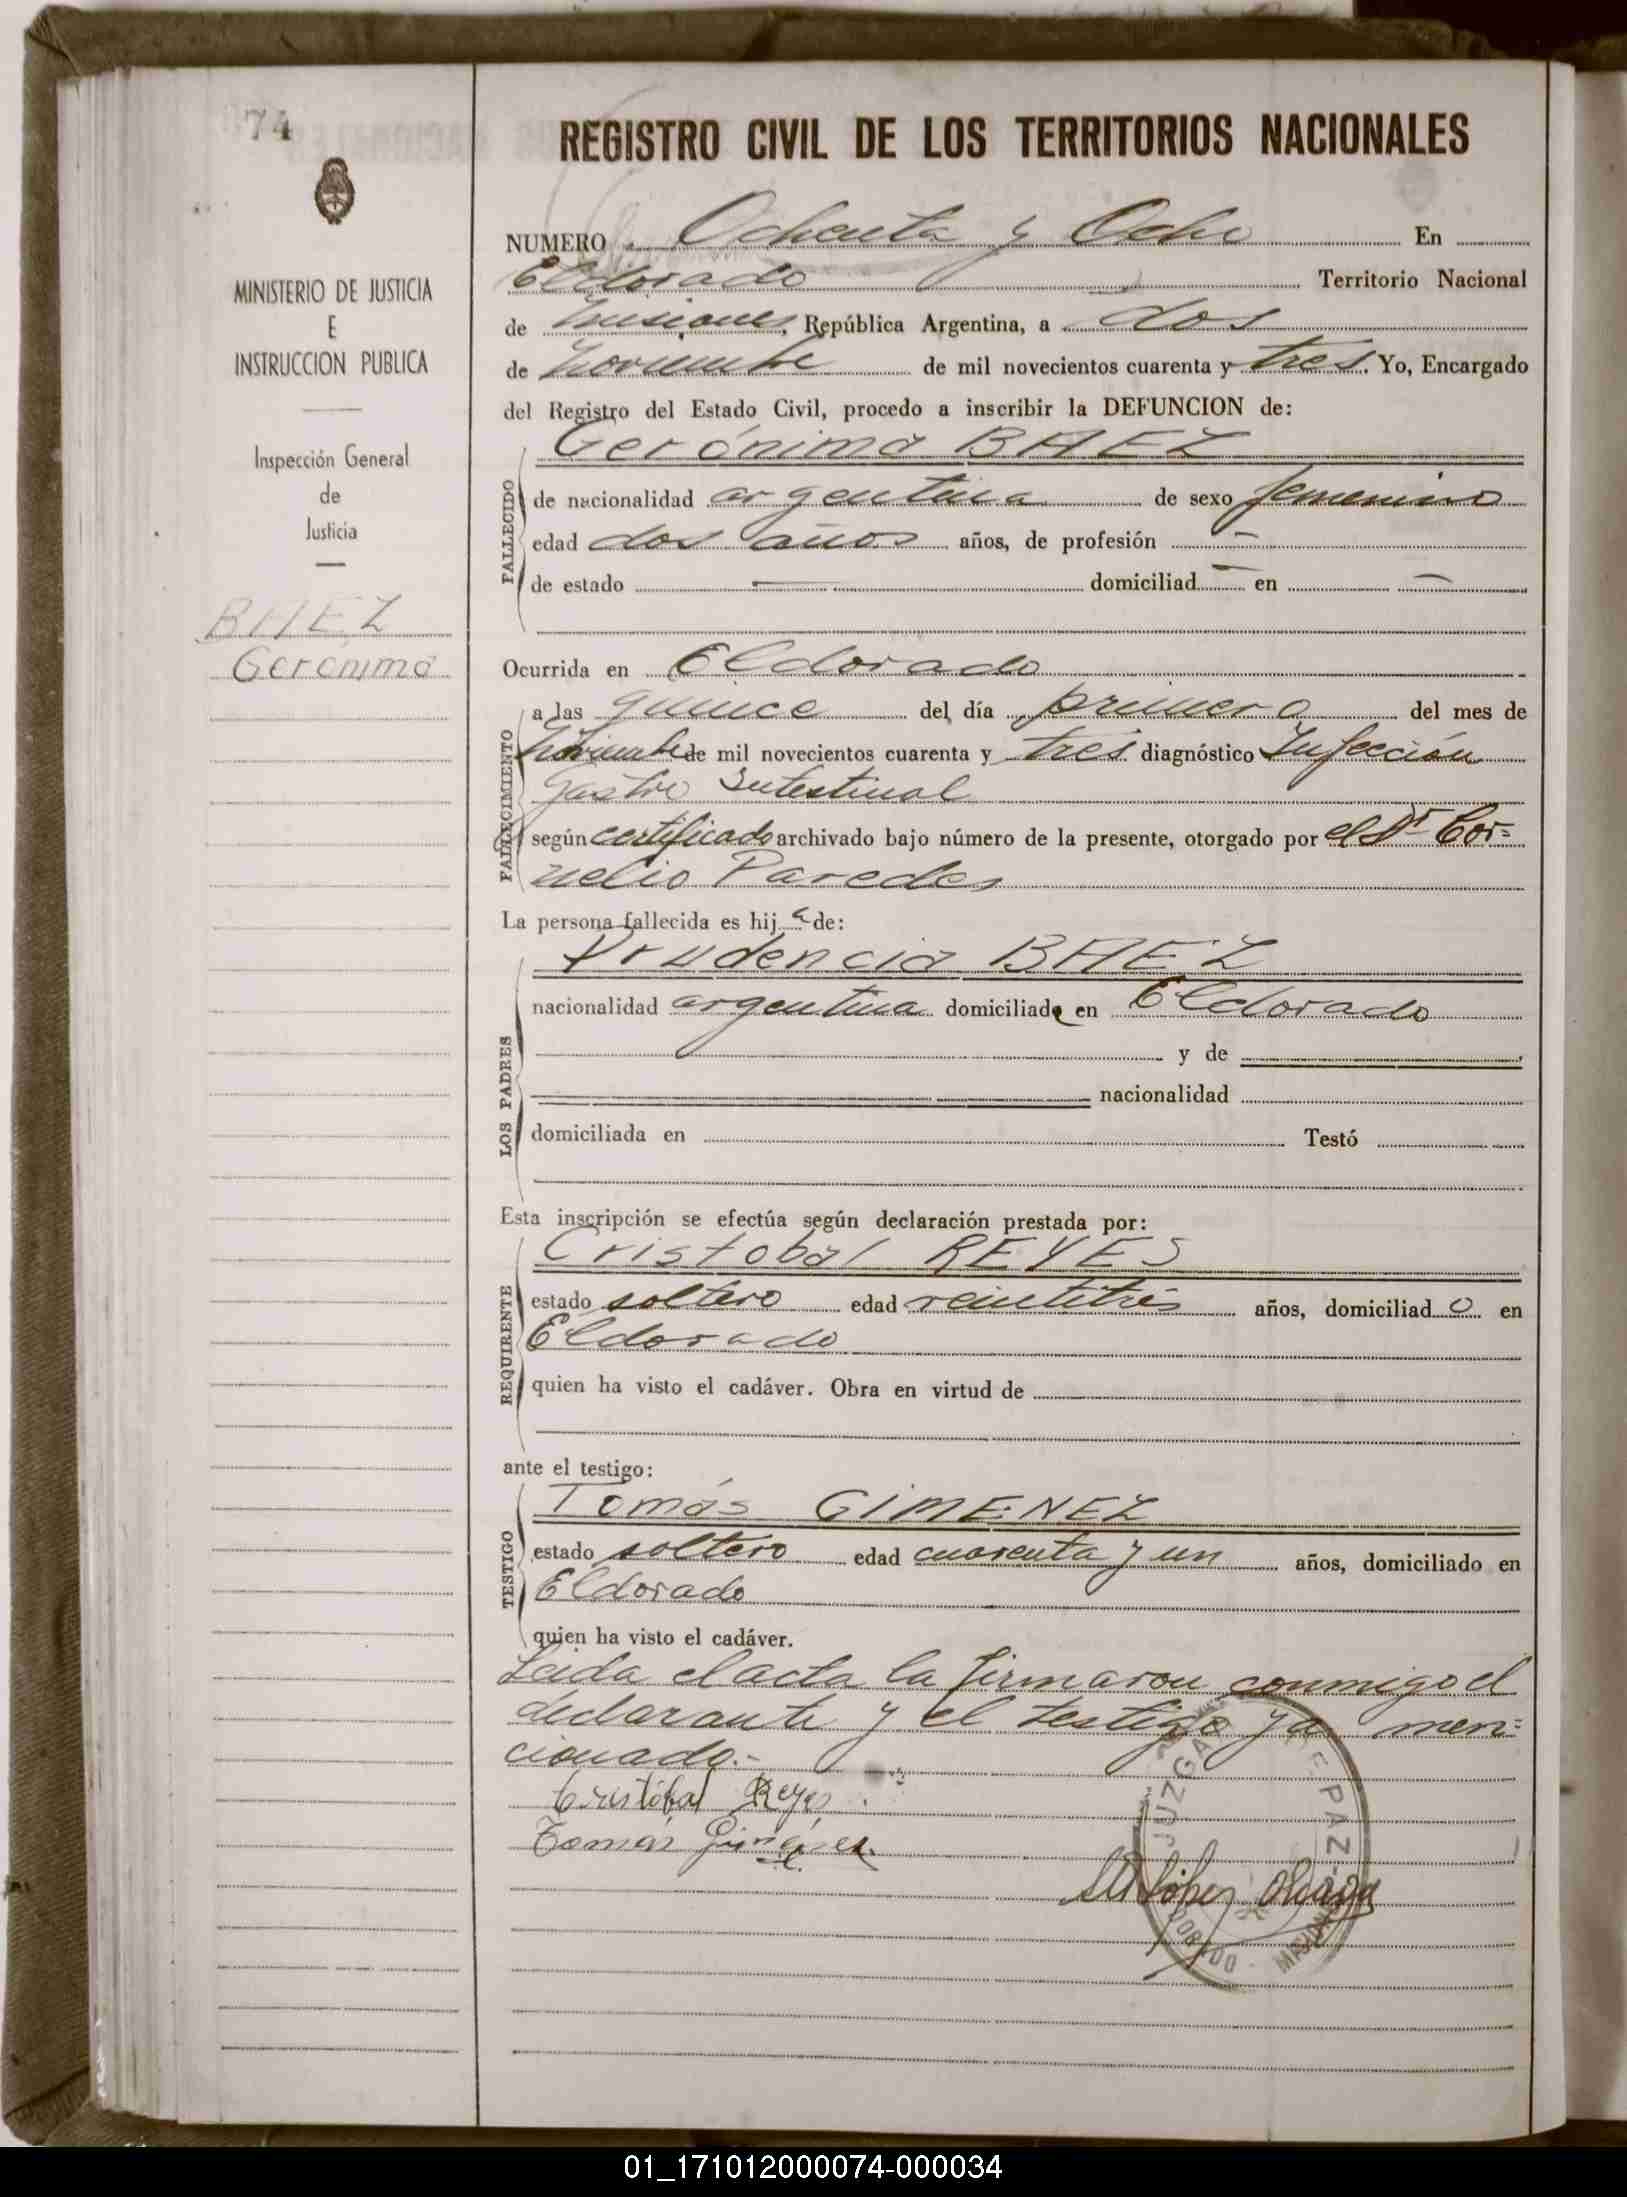 74
REGISTRO CIVIL DE LOS TERRITORIOS NACIONALES
MINISTERIO DE JUSTICIA
E
INSTRUCCION PUBLICA
Inspección General
de
Justicia
BAEZ
Gerónima
NUMERO Ochenta y Ocho En
Eldorado Territorio Nacional
de Misiones, República Argentina, a dos
de noviembre de mil novecientos cuarenta y tres. Yo, Encargado
del Registro del Estado Civil, procedo a inscribir la DEFUNCION de:
Gerónima BAEZ
FALLECIDO
de nacionalidad argentina de sexo femenino
edad dos años años, de profesión —
de estado — domiciliad — en —
Ocurrida en Eldorado
FALLECIMIENTO
a las quince del día primero del mes de
noviembre de mil novecientos cuarenta y tres diagnóstico Infección
gastro Intestinal
según certificado archivado bajo número de la presente, otorgado por el Dr Cor=
nelio Paredes
La persona fallecida es hij a de:
LOS PADRES
Prudencia BAEZ
nacionalidad argentina domiciliada en Eldorado
y de
nacionalidad
domiciliada en Testó
Esta inscripción se efectúa según declaración prestada por:
REQUIRENTE
Cristobal REYES
estado soltero edad veintitrés años, domiciliad o en
Eldorado
quien ha visto el cadáver. Obra en virtud de
ante el testigo:
TESTIGO
Tomás GIMENEZ
estado soltero edad cuarenta y un años, domiciliado en
Eldorado
quien ha visto el cadáver.
Leida el acta la firmaron conmigo el
declarante y el testigo ya men=
cionado.-
Cristóbal Reyes
Tomás Giménez
JUZGADO DE PAZ
01_171012000074-000034